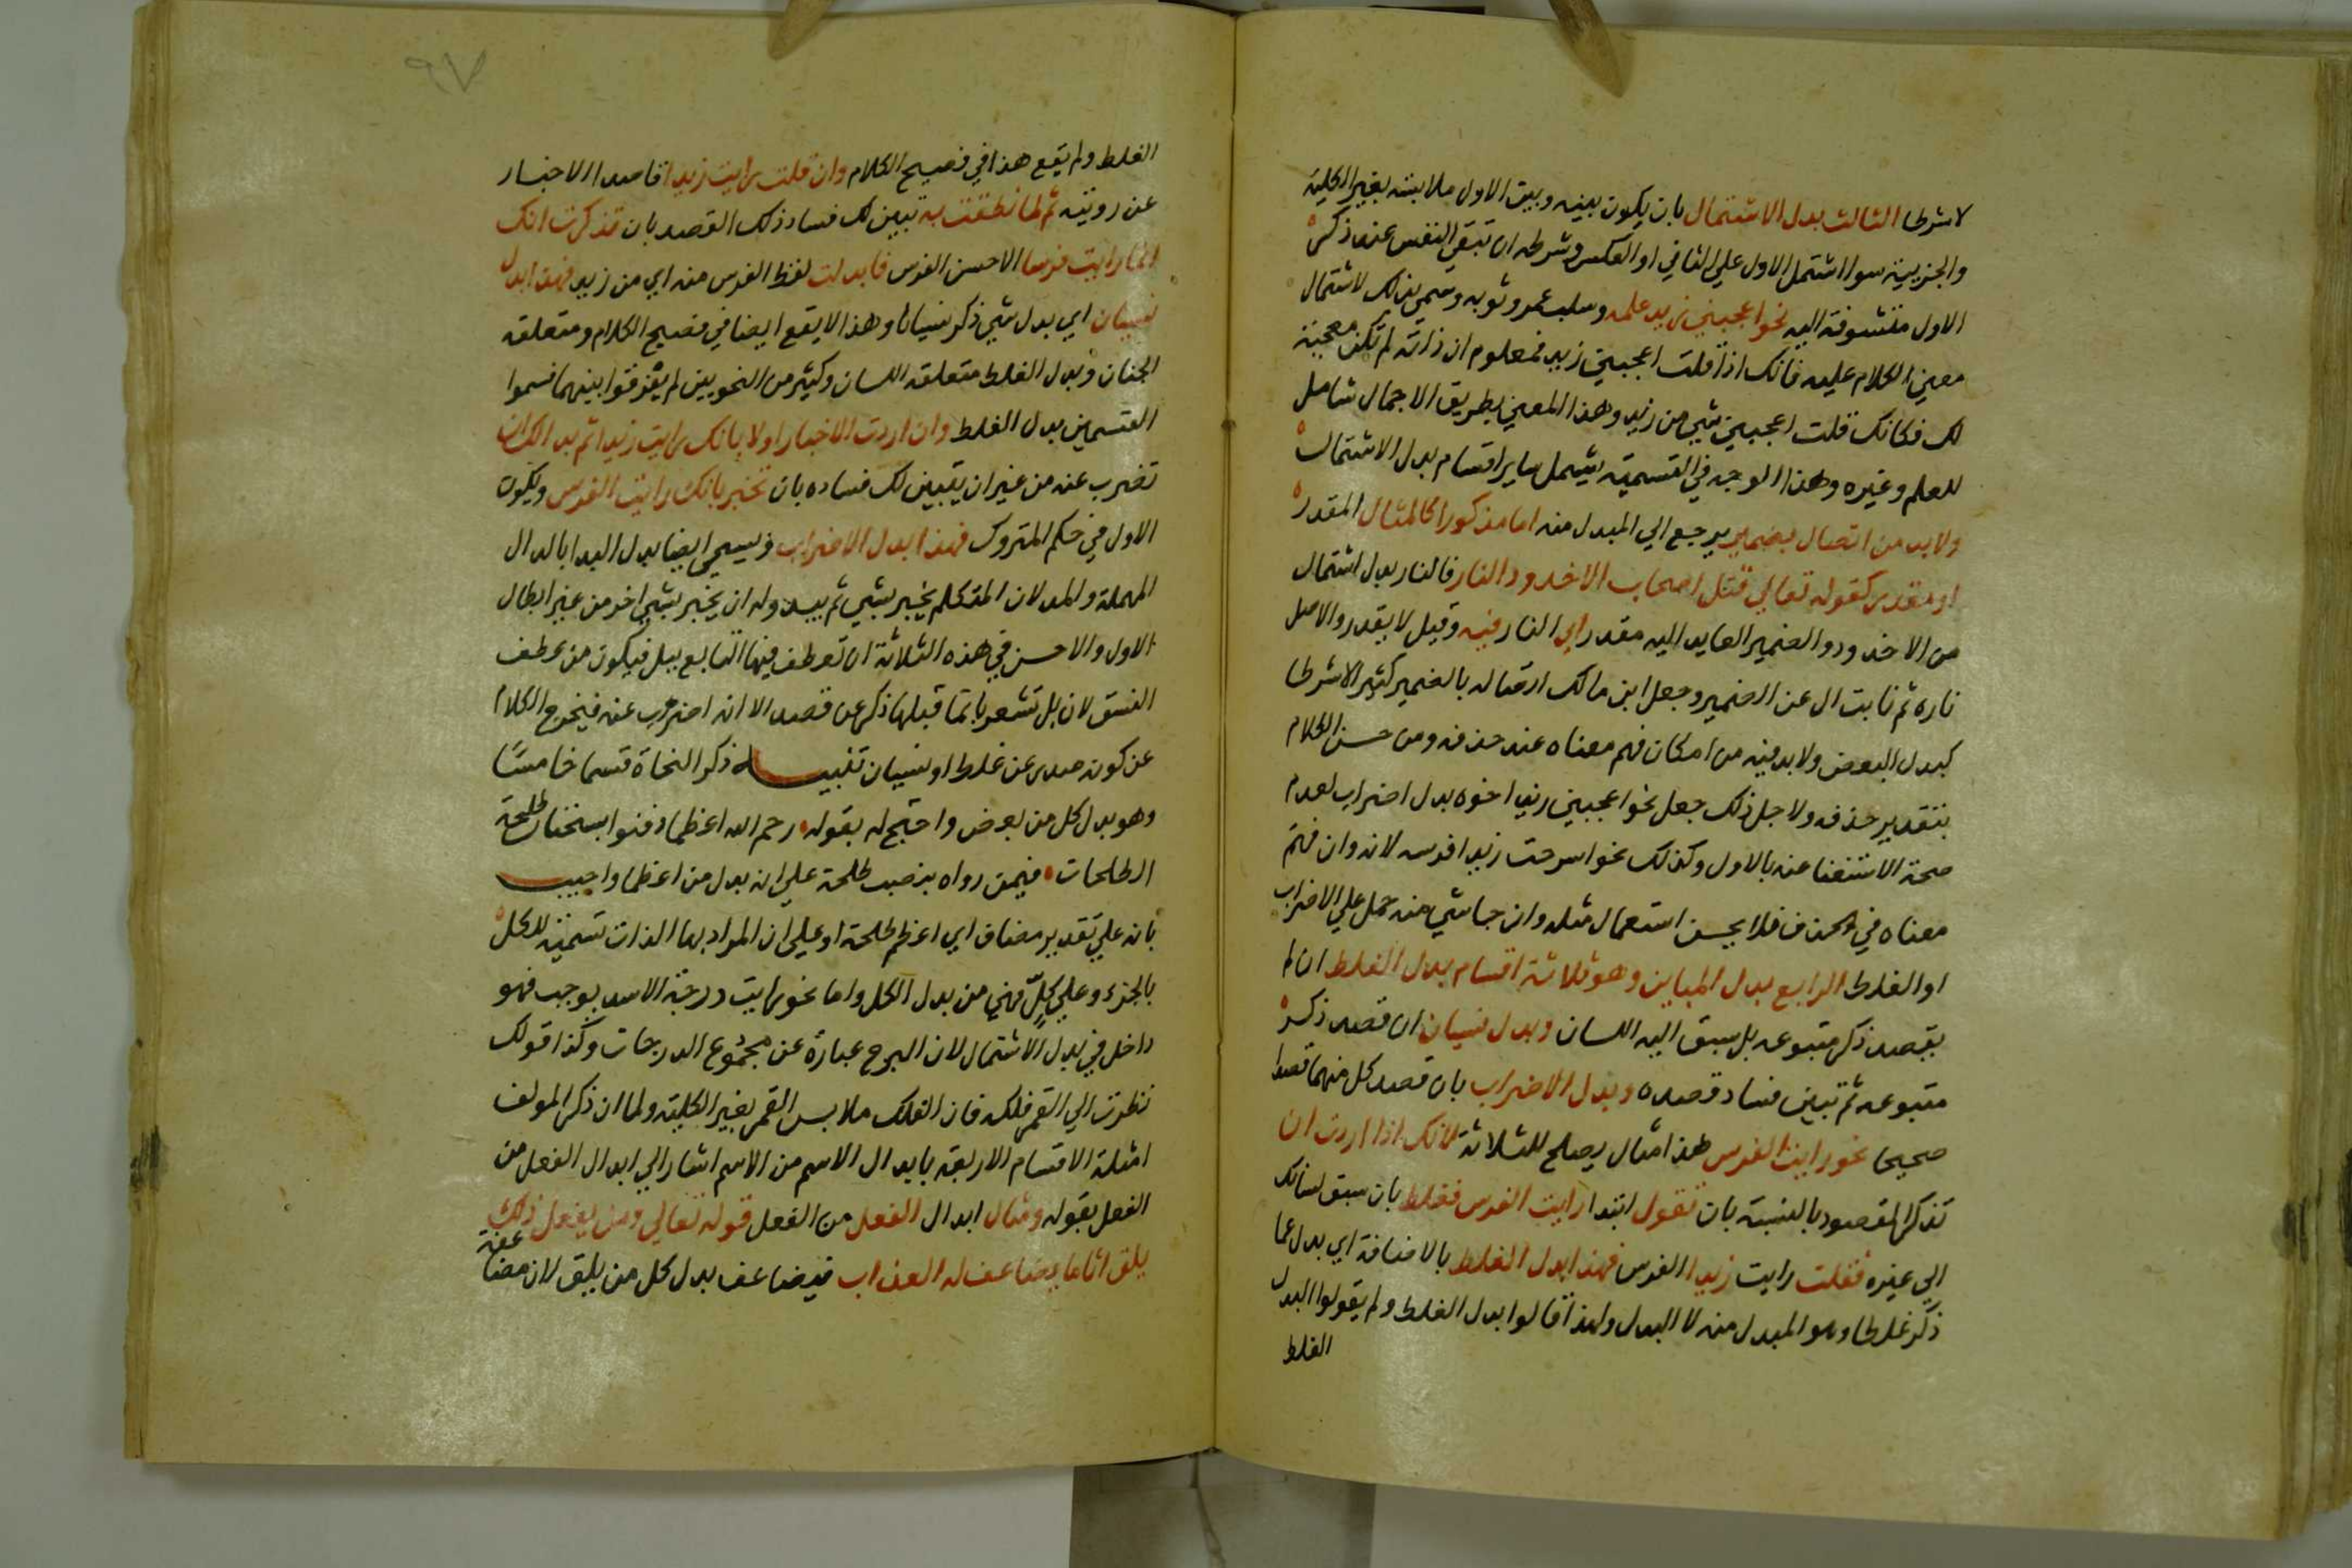 لاشرطا الثالث بدل الاشتمال بان يكون بينه وبين الاول ملابسة بغير الكلية
والجزيية سوا اشتمل الاول علي الثاني او العكس وشرطه ان تبقي النفس عند ذكر
الاول متشوفة اليه نحو اعجبني زيد علمه وسلب عمرو ثوبه وسمي بذلك لاشتمال
معني الكلام عليه فانك اذا قلت اعجبني زيد فمعلوم ان ذاته لم تكن معجبة
لك فكانك قلت اعجبني شي من زيد وهذا المعني بطريق الاجمال شامل
للعلم وغيره وهذا الوجه في التسمية يشمل ساير اقسام بدل الاشتمال
ولابد من اتصال بضمير يرجع الي المبدل منه اما مذكور كالمثال المقدر
او مقدر كقوله تعالي قتل اصحاب الاخدود النار فالنار بدل اشتمال
من الاخدود والضمير العايد اليه مقدر اي النار فيه وقيل لا يقدر والاصل
ناره ثم نابت ال عن الضمير وجعل ابن مالك اتصاله بالضمير كثير الاشرطا
كبدل البعض ولابد فيه من امكان فهم معناه عند حذفه ومن حسن الكلام
بتقدير حذفه ولاجل ذلك جعل نحو اعجبني زيد اخوه بدل اضراب لعدم
صحة الاستغنا عنه بالاول وكذلك نحو اسرجت زيدا فرسه لانه وان فهم
معناه في الحذف فلا يحسن استعمال مثله وان جا شي منه حمل علي الاضراب
او الغلط الرابع بدل المباين وهو ثلاثة اقسام بدل الغلط ان لم
يقصد ذكر متبوعه بل سبق اليه اللسان وبدل نسيان ان قصد ذكر
متبوعه ثم تبين فساد قصده وبدل الاضراب بان قصد كل منهما قصدا
صحيحا نحو رايت الفرس هذا مثال يصلح للثلاثة لانك اذا اردت ان
تذكر المقصود بالنسبة بان تقول ابتدا رايت الفرس فغلط بان سبق لسانك
الي غيره فقلت رايت زيدا الفرس فهذا بدل الغلط بالاضافة اي بدل عما
ذكر غلطا وهو المبدل منه لا البدل ولهذا قالوا بدل الغلط ولم يقولوا البدل
الغلط
الغلط ولم يقع هذا في فصيح الكلام وان قلت رايت زيدا قاصدا الاخبار
عن رويته ثم لما نطقت به تبين لك فساد ذلك القصد بان تذكرت انك
انما رايت فرسا الاحسن الفرس فابدلت لفظ الفرس منه اي من زيد فهذا بدل
نسيان اي بدل شي ذكر نسيانا وهذا لا يقع ايضا في فصيح الكلام ومتعلقه
الجنان وبدل الغلط متعلقه اللسان وكثير من النحويين لم يفرقوا بينهما فسموا
القسمين بدل الغلط وان اردت الاخبار اولا بانك رايت زيدا ثم بدا لك ان
تضرب عنه من غير ان يتبين لك فساده بان تخبر بانك رايت الفرس ويكون
الاول في حكم المتروك فهذا بدل الاضراب ويسمي ايضا بدل البدا بالدال
المهملة والمد لان المتكلم يخبر بشي ثم يبدو له ان يخبر بشي اخر من غير ابطال
الاول والاحسن في هذه الثلاثة ان تعطف فيها التابع ببل فيكون من عطف
النسق لان بل تشعر بانما قبلها ذكر عن قصد الا انه اضرب عنه فيخرج الكلام
عن كونه صدر عن غلط او نسيان تنبيه ذكر النحاة قسما خامسا
وهو بدل كل من بعض واحتج له بقوله رحم الله اعظما دفنوا بسجستان طلحة
الطلحات فيمن رواه بنصب طلحة علي انه بدل من اعظما واجيب
بانه علي تقدير مضاف اي اعظم طلحة او علي ان المراد بها الذات تسمية للكل
بالجزء وعلي كل فهي من بدل الكل واما نحو رايت درجة الاسد بوجب فهو
داخل في بدل الاشتمال لان البرج عبارة عن مجموع الدرجات وكذا قولك
نظرت الي القمر فلكه فان الفلك ملابس القمر بغير الكلية ولما ان ذكر المولف
امثلة الاقسام الاربعة بابدال الاسم من الاسم اشار الي ابدال الفعل من
الفعل بقوله ومثال ابدال الفعل من الفعل قوله تعالي ومن يفعل ذلك
يلق اثاما يضاعف له العذاب فيضاعف بدل كل من يلق لان مضاعفة